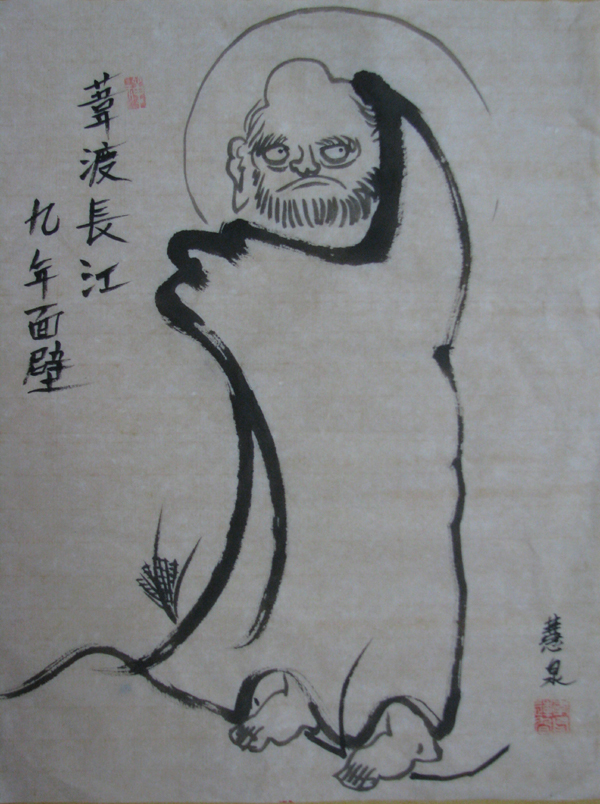 葦渡長江
九年面壁
慧泉